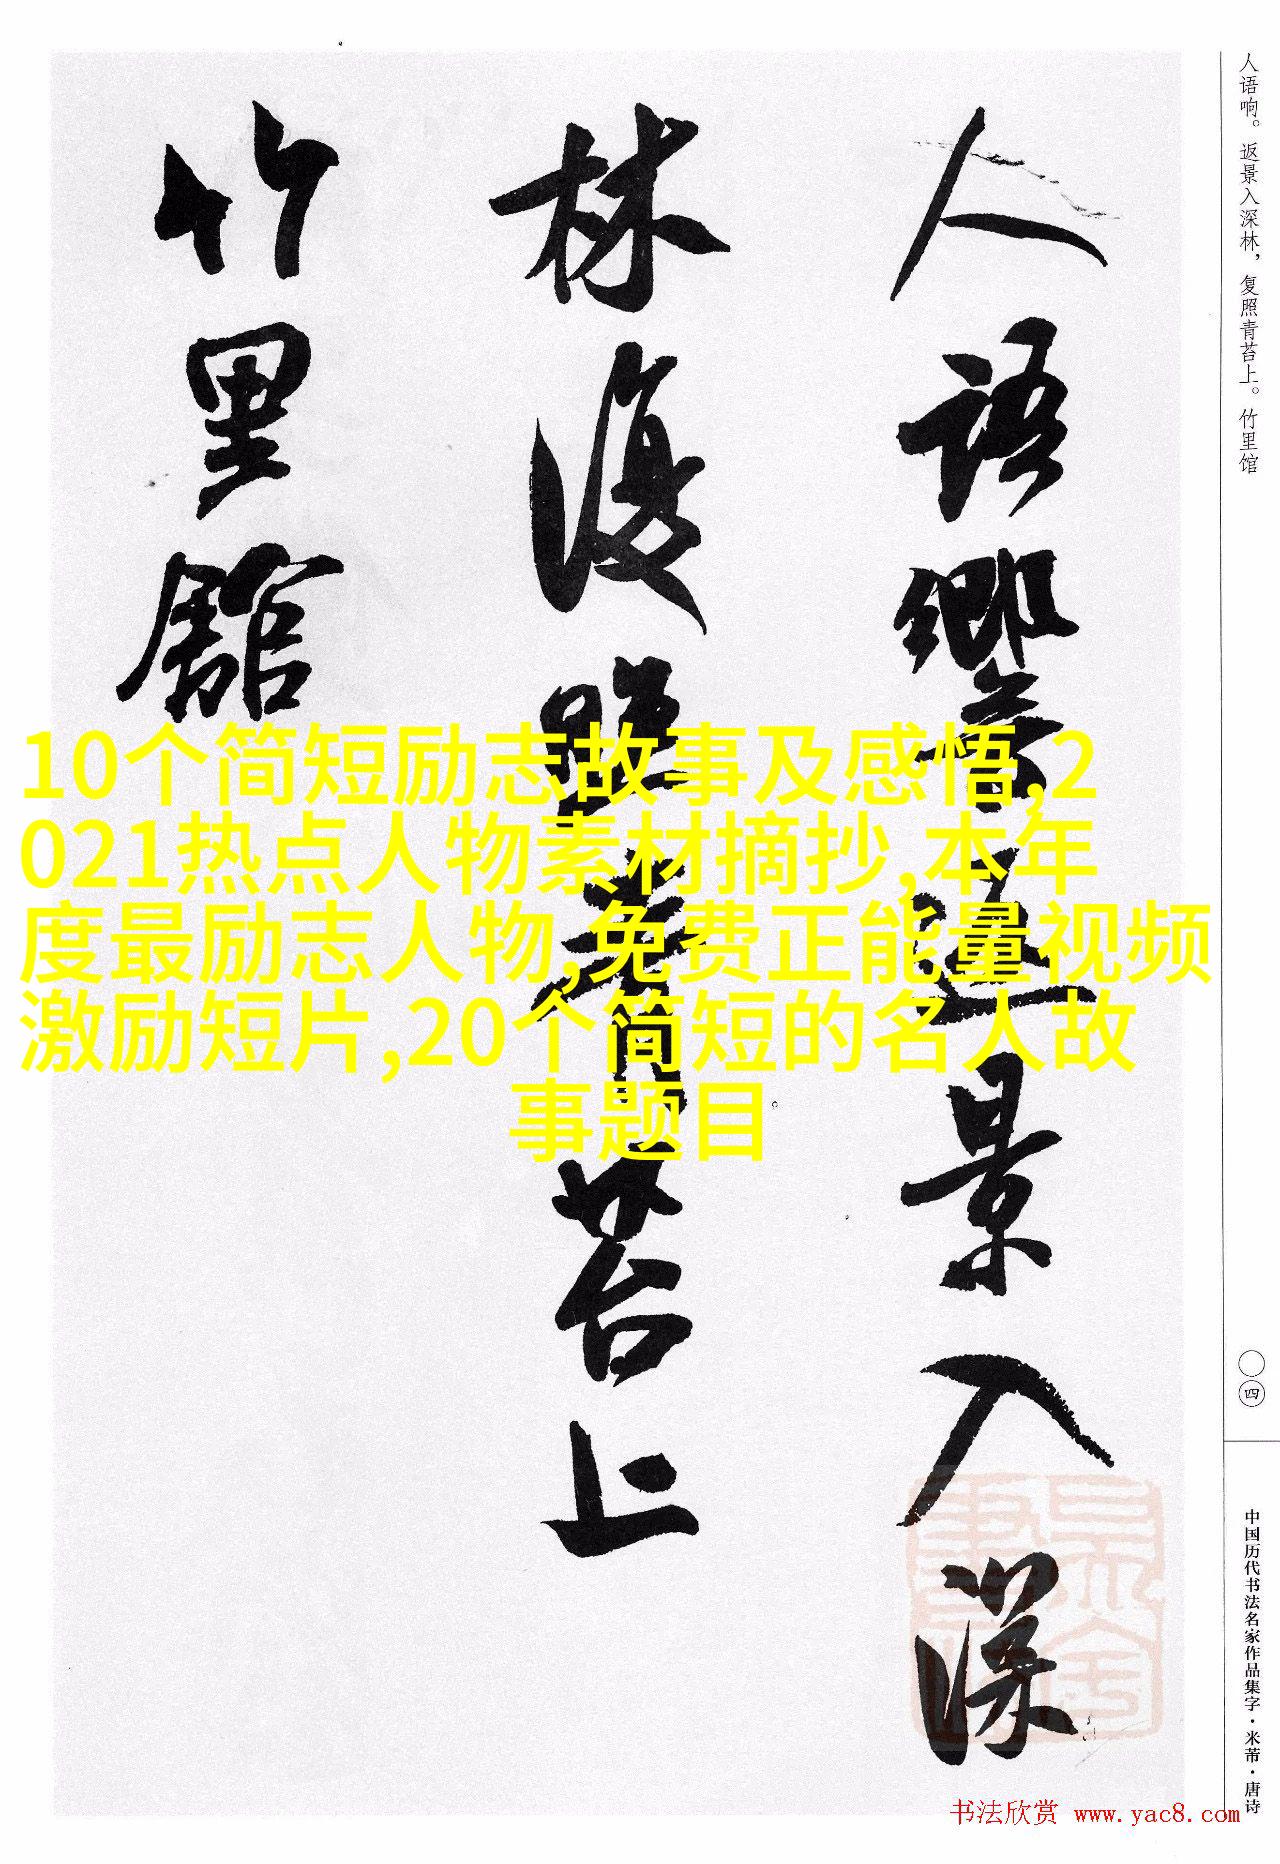 人语响。返景入深林，复照青苔上。竹里馆
人語響返景入深
林復照青苔上
竹里館
10个简短励志故事及感悟,2
021热点人物素材摘抄,本年
度最励志人物,免费正能量视频
激励短片,20个简短的名人故
事题目
〇四
中国历代书法名家作品集字·米芾·唐诗
书法欣赏 www.yac8.com